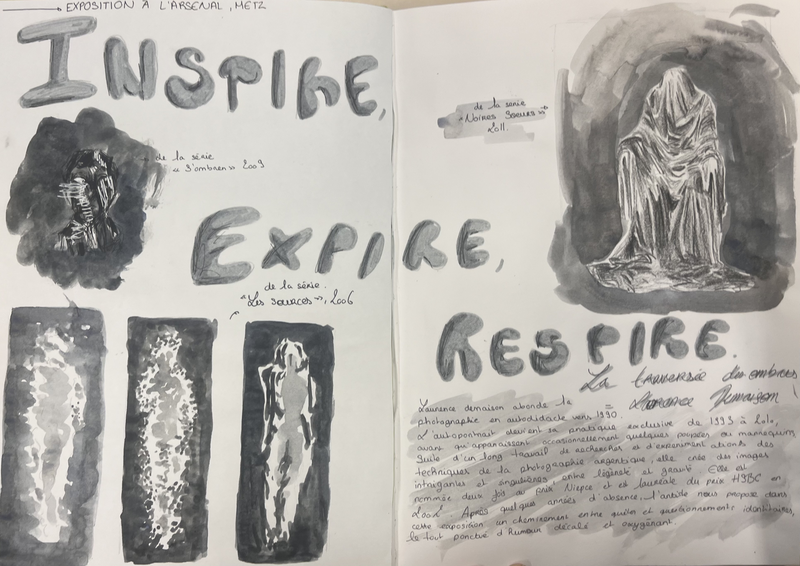 EXPOSITION À L'ARSENAL, METZ
INSPIRE,
de la série
« S'ombrer » 2009
EXPIRE,
de la série
« Les sources », 2006
de la série
« Noires Soeurs »
2011
RESPIRE.
La traversée des ombres
Laurence Demaison
Laurence demaison aborde la
photographie en autodidacte vers 1990.
L'autoportrait devient sa pratique exclusive de 1993 à
avant qu'apparaissent occasionnellement quelques poupées ou mannequins
Suite d'un long travail de recherches et d'expérimentations des
techniques de la photographie argentique, elle crée des images
intrigantes et singulières, entre légèreté et gravité. Elle est
nommée deux fois au prix Niepce et est lauréate du prix HSBC en
Après quelques années d'absence, l'artiste nous propose dans
cette exposition un cheminement entre et questionnements identitaires,
le tout ponctué d'Humour décalé et oxygénant.